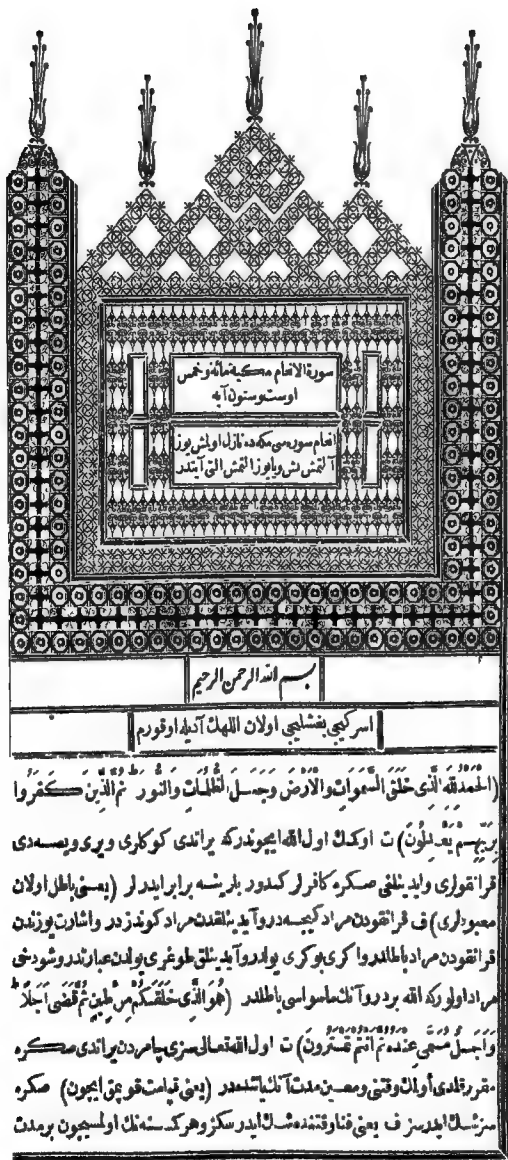 سورة الانعام مكية مائة وخمس
اوست وستون آية
انعام سوره سى مكه ده نازل اولمش يوز
آلتمش بش ويا يوز التمش التى آيتدر
بسم الله الرحمن الرحيم
اسركيجى بغشليجى اولان اللهك آديله اوقورم
(اَلْحَمْدُ لِلّٰهِ الَّذِى خَلَقَ السَّمٰوَاتِ وَالْاَرْضَ وَجَعَلَ الظُّلُمَاتِ وَالنُّورَ ط ثُمَّ الَّذِينَ كَفَرُوا
بِرَبِّهِمْ يَعْدِلُونَ) ت اوكمك اول الله ايچوندركه يراتدى كوكلرى ويرى ويسه دى
قرانقولرى وايدينلغى صكره كافرلر كندور باريسه برابر ايدرلر (يعنى باطل اولان
معبودلرى) ف قرانقودن مراد كيجه در وآيدينلقدن مراد كوندزدر واشارت يوزندن
قرانقودن مراد باطلدر واكرى بوكرى يولدر وآيدينلق طوغرى يولدن عبارتدر وشودخى
مراد اولور كه الله بردر وآنك ماسواسى باطلدر (هُوَ الَّذِى خَلَقَكُمْ مِنْ طِينٍ ثُمَّ قَضَى اَجَلًا ط
وَاَجَلٌ مُسَمًّى عِنْدَهُ ثُمَّ اَنْتُمْ تَمْتَرُونَ) ت اول الله تعالى سزى چامردن يراتدى صكره
مقرر قلدى أولمك وقتنى ومعين مدت آنك ياننده در (يعنى قيامت قوپمق ايچون) صكره
سز شك ايدرسز ف يعنى فنا وقتنده شك ايدرسكز وهر كمسنه نك اولمسيچون بر مدت